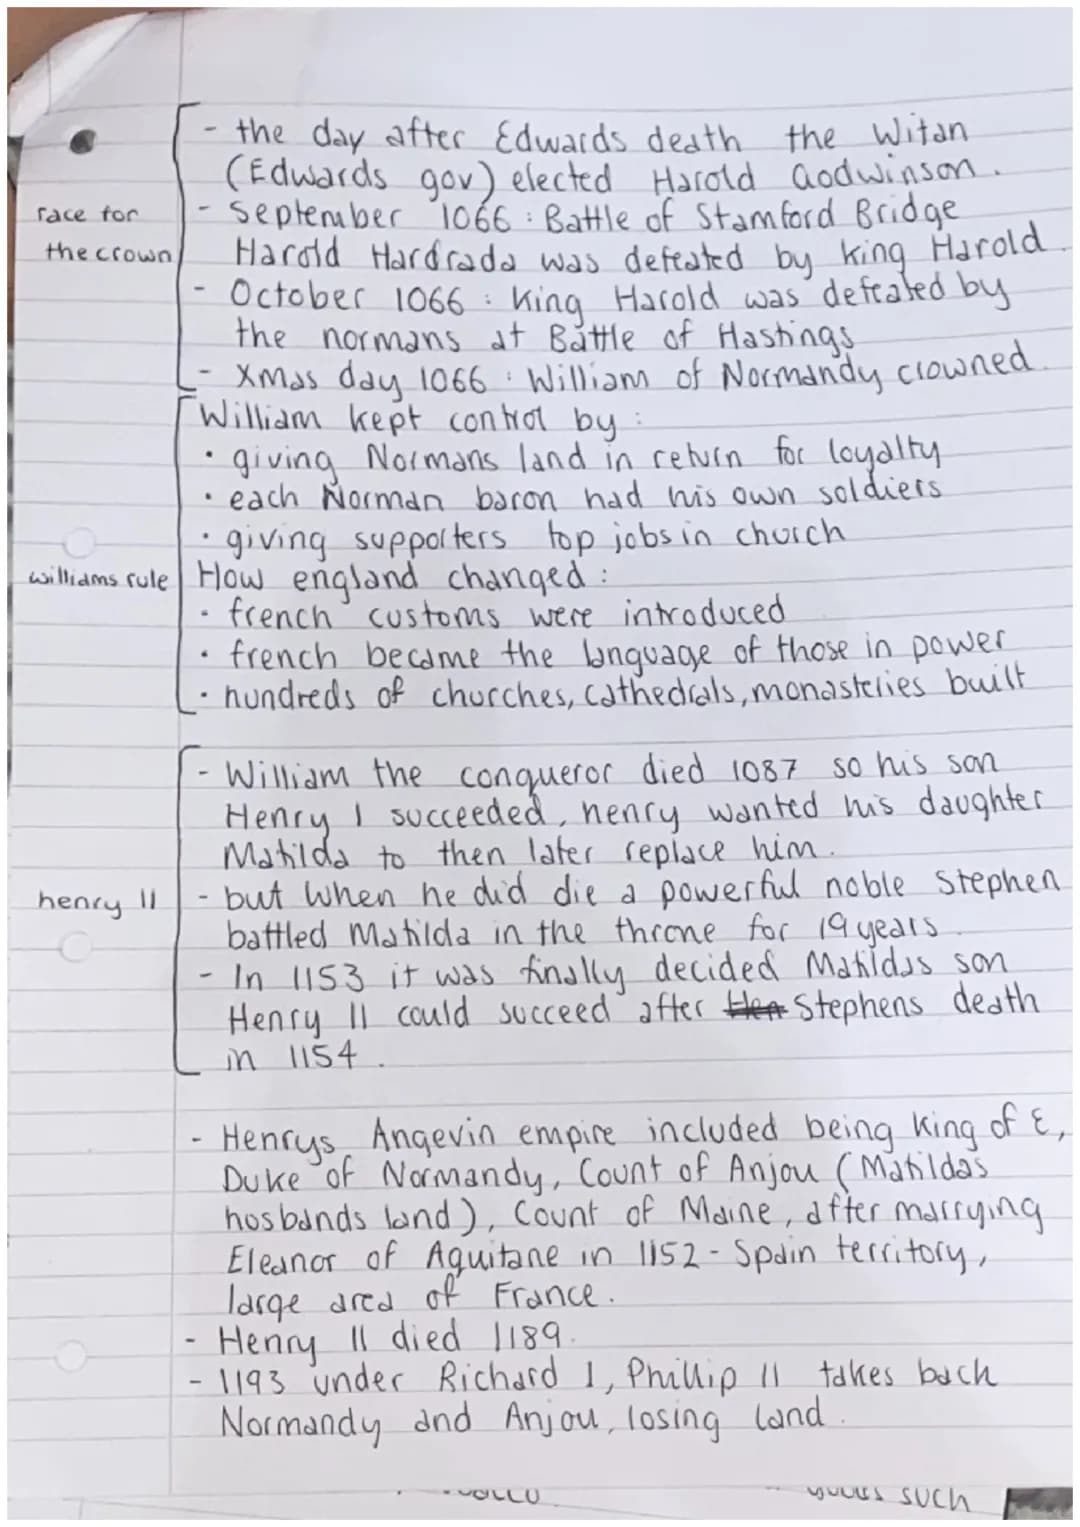 - the day after Edwards death the Witan
(Edwards gov) elected Harold Godwinson.
race for
- September 1066 : Battle of Stamford Bridge
the crown
Harold Hardrada was defeated by king Harold.
- October 1066 : King Harold was defeated by
the normans at Battle of Hastings
- Xmas day 1066 : William of Normandy crowned.
William kept control by :
• giving Normans land in return for loyalty
• each Norman baron had his own soldiers
• giving supporters top jobs in church
williams rule
How england changed :
• french customs were introduced
• french became the language of those in power
• hundreds of churches, cathedrals, monasteries built
- William the conqueror died 1087 so his son
Henry I succeeded, henry wanted his daughter
Matilda to then later replace him.
henry II
- but when he did die a powerful noble Stephen
battled Matilda in the throne for 19 years.
- In 1153 it was finally decided Matildas son
Henry II could succeed after Hen Stephens death
in 1154.
- Henrys Angevin empire included being King of E,
Duke of Normandy, Count of Anjou (Matildas
hosbands land), Count of Maine, after marrying
Eleanor of Aquitane in 1152 - Spain territory,
large area of France.
- Henry II died 1189.
- 1193 under Richard I, Phillip II takes back
Normandy and Anjou, losing land.
such